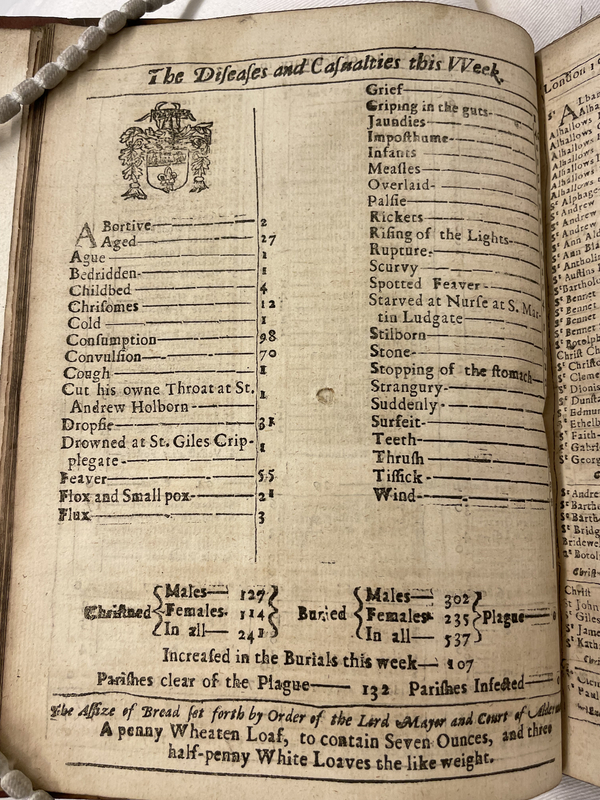 The Diſeaſes and Caſualties this VVeek.
ABortive 2
Aged 27
Ague 1
Bedridden 1
Childbed 4
Chriſomes 12
Cold 1
Conſumption 98
Convulſion 70
Cough 1
Cut his owne Throat at St.
Andrew Holborn 1
Dropſie 31
Drowned at St. Giles Crip-
plegate 1
Feaver 55
Flox and Small pox 21
Flux 3
Grief
Griping in the guts
Jaundies
Impoſthume
Infants
Meaſles
Overlaid
Palſie
Rickets
Riſing of the Lights
Rupture
Scurvy
Spotted Feaver
Starved at Nurſe at S. Mar-
tin Ludgate
Stilborn
Stone
Stopping of the ſtomach
Strangury
Suddenly
Surfeit
Teeth
Thruſh
Tiſſick
Wind
Chriſtned Males 127 Females 114 In all 241 Buried Males 302 Females 235 In all 537 Plague 0
Increaſed in the Burials this week 107
Pariſhes clear of the Plague 132 Pariſhes Infected
The Aſſize of Bread ſet forth by Order of the Lord Mayor and Court of
A penny Wheaten Loaf, to contain Seven Ounces, and three
half-penny White Loaves the like weight.
London
Alhallows
Alhallows
Alhallows
Alhallows
Alhallows
Alhallows
Sᵗ Alphage
Sᵗ Andrew
Sᵗ Andrew
Sᵗ Andrew
Sᵗ Ann
Sᵗ Ann
Sᵗ Bennet
Sᵗ Bennet
Sᵗ Bennet
Sᵗ Bennet
Chriſt